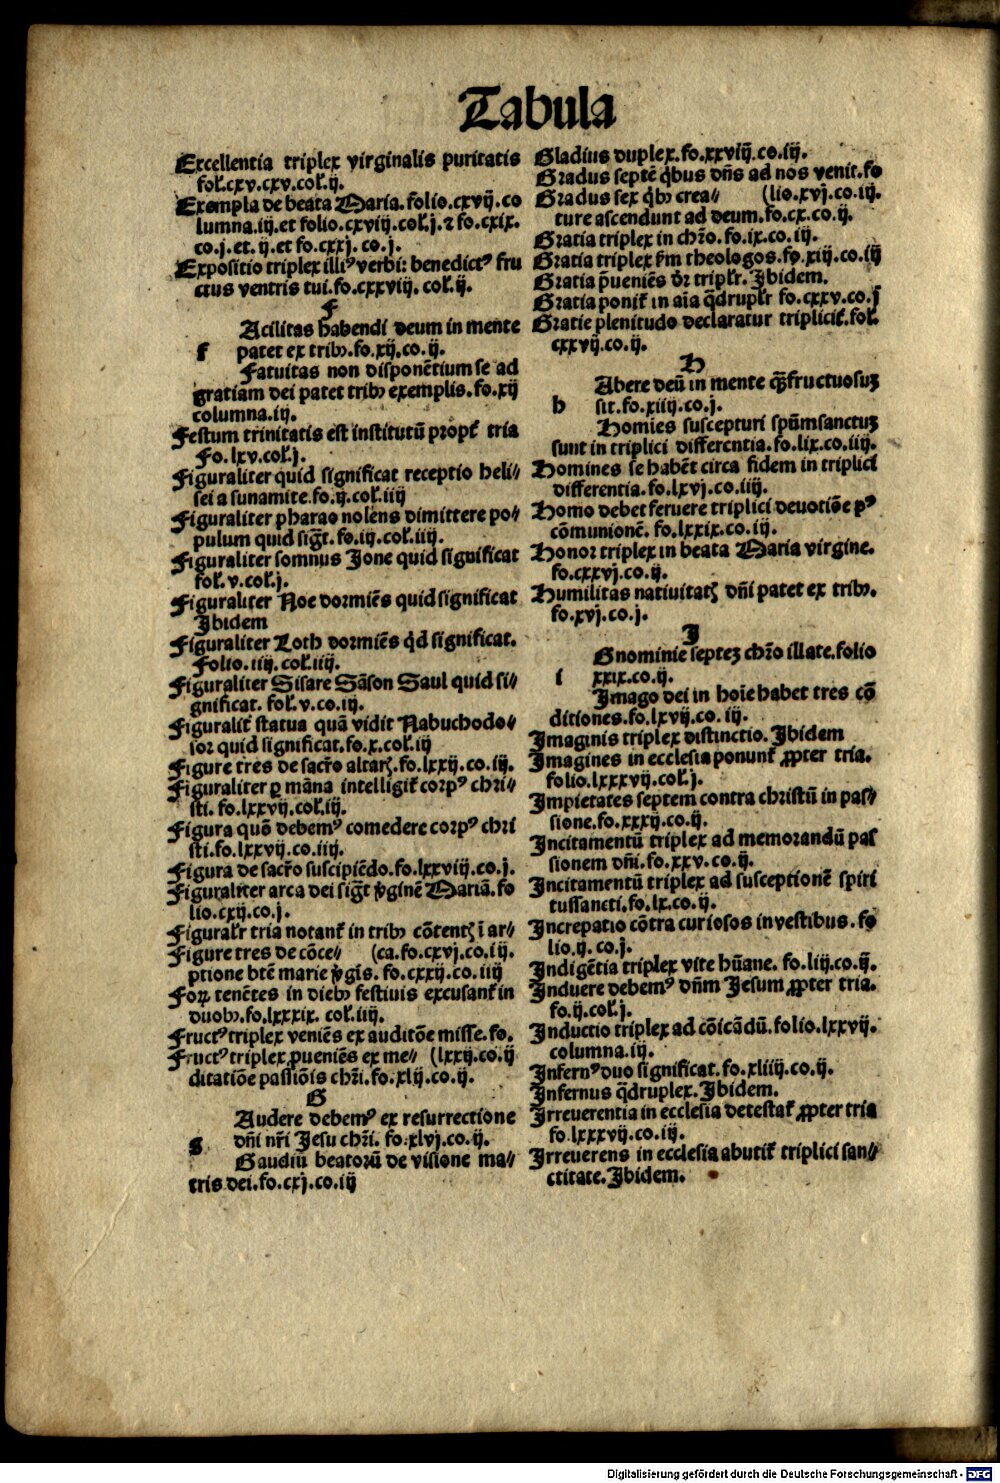 Tabula
Excellentia triplex virginalis puritatis
fol̄.cxv.cxv.col̄.ij.
Exempla de beata Maria.folio.cxvij.co
lumna.iij.et folio.cxviij.col̄.j.⁊ fo.cxix.
co.j.et.ij.et fo.cxxj.co.j.
Expositio triplex illiꝰ verbi: benedictꝰ fru
ctus ventris tui.fo.cxxviij.col̄.ij.
F
Acilitas habendi deum in mente
f patet ex tribꝫ.fo.xij.co.ij.
Fatuitas non disponētium se ad
gratiam dei patet tribꝫ exemplis.fo.xij
columna.iij.
Festum trinitatis est institutū propt̄ tria
Fo.lxv.col̄.j.
Figuraliter quid significat receptio heli⸗
sei a sunamite.fo.ij.col̄.iiij
Figuraliter pharao nolens dimittere po⸗
pulum quid sigt̄.fo.iij.col̄.iiij.
Figuraliter somnus Jone quid significat
fol̄.v.col̄.j.
Figuraliter Noe dormiēs quid significat
Ibidem
Figuraliter Loth dormiēs qd̄ significat.
Folio.iiij.col̄.iiij.
Figuraliter Sisare Sāson Saul quid si⸗
gnificat. fol̄.v.co.iij.
Figuralit̄ statua quā vidit Nabuchodo⸗
sor quid significat.fo.x.col̄.iij
Figure tres de sacr̄o altarꝭ.fo.lxxij.co.iij.
Figuraliter ꝑ māna intelligit̄ corpꝰ chri⸗
sti. fo.lxxvij.col̄.iij.
Figura quō debemꝰ comedere corpꝰ chri
sti.fo.lxxvij.co.iiij.
Figura de sacr̄o suscipiēdo.fo.lxxviij.co.j.
Figuraliter arca dei sigt̄ v̄ginē Mariā.fo
lio.cxij.co.j.
Figural̄r tria notant̄ in tribꝫ cōtentꝭ ī ar⸗
Figure tres de cōce⸗ (ca.fo.cxvj.co.iij.
ptione btē marie v̄gīs. fo.cxxij.co.iiij
Foꝝ tenētes in diebꝫ festiuis excusant̄ in
duobꝫ.fo.lxxxix. col̄.iiij.
Fructꝰ triplex veniēs ex auditōe misse.fo.
Fructꝰ triplex ꝓueniēs ex me⸗ (lxxij.co.ij
ditatiōe passiōis chr̄i.fo.xlij.co.ij.
G
Audere debemꝰ ex resurrectione
g dn̄i nr̄i Jesu chr̄i. fo.xlvj.co.ij.
Gaudiū beatorū de visione ma⸗
tris dei.fo.cxj.co.iij
Gladius duplex.fo.xxviij.co.iij.
Gradus septē qͥbus dn̄s ad nos venit.fo
Gradus sex qͥbꝫ crea⸗ (lio.xvj.co.iij.
ture ascendunt ad deum.fo.cx.co.ij.
Gratia triplex in chr̄o.fo.ix.co.iij.
Gratia triplex sm̄ theologos.fo.xij.co.iij
Gratia p̄ueniēs dr̄ tripl̄r. Ibidem.
Gratia ponit̄ in aīa q̄drupl̄r fo.cxxv.co.j
Gratie plenitudo declaratur triplicit̄.fol̄.
cxxvij.co.ij.
H
Abere deū in mente qꝫ̄fructuosuꝫ
h sit.fo.xiij.co.j.
Homies suscepturi spm̄sanctuꝫ
sunt in triplici differentia.fo.lix.co.iiij.
Homines se habēt circa fidem in triplici
differentia.fo.lxvj.co.iiij.
Homo debet feruere triplici deuotiōe pꝰ
cōmunionē. fo.lxxix.co.iij.
Honor triplex in beata Maria virgine.
fo.cxxvj.co.ij.
Humilitas natiuitatꝭ dn̄i patet ex tribꝫ.
fo.xvj.co.j.
I
Gnominie septeꝫ chr̄o illate.folio
i xxix.co.ij.
Imago dei in hoīe habet tres cō
ditiones.fo.lxvij.co. iij.
Imaginis triplex distinctio. Ibidem
Imagines in ecclesia ponunt̄ ꝓpter tria.
folio.lxxxvij.col̄.j.
Impietates septem contra christū in pas⸗
sione.fo.xxxij.co.ij.
Incitamentū triplex ad memorandū pas
sionem dn̄i.fo.xxv.co.ij.
Incitamentū triplex ad susceptionē spiri
tussancti.fo.lx.co.ij.
Increpatio cōtra curiosos in vestibus.fo
lio.ij.co.j.
Indigētia triplex vite hūane. fo.liij.co.ij.
Induere debemꝰ dn̄m Jesum ꝓpter tria.
fo.ij.col̄.j.
Inductio triplex ad cōicādū.folio.lxxvij.
columna.iij.
Infernꝰ duo significat.fo.xliiij.co.ij.
Infernus q̄druplex.Ibidem.
Irreuerentia in ecclesia detestat̄ ꝓpter tria
fo.lxxxvij.co.iij.
Irreuerens in ecclesia abutit̄ triplici san⸗
ctitate.Ibidem.
Digitalisierung gefördert durch die Deutsche Forschungsgemeinschaft - DFG